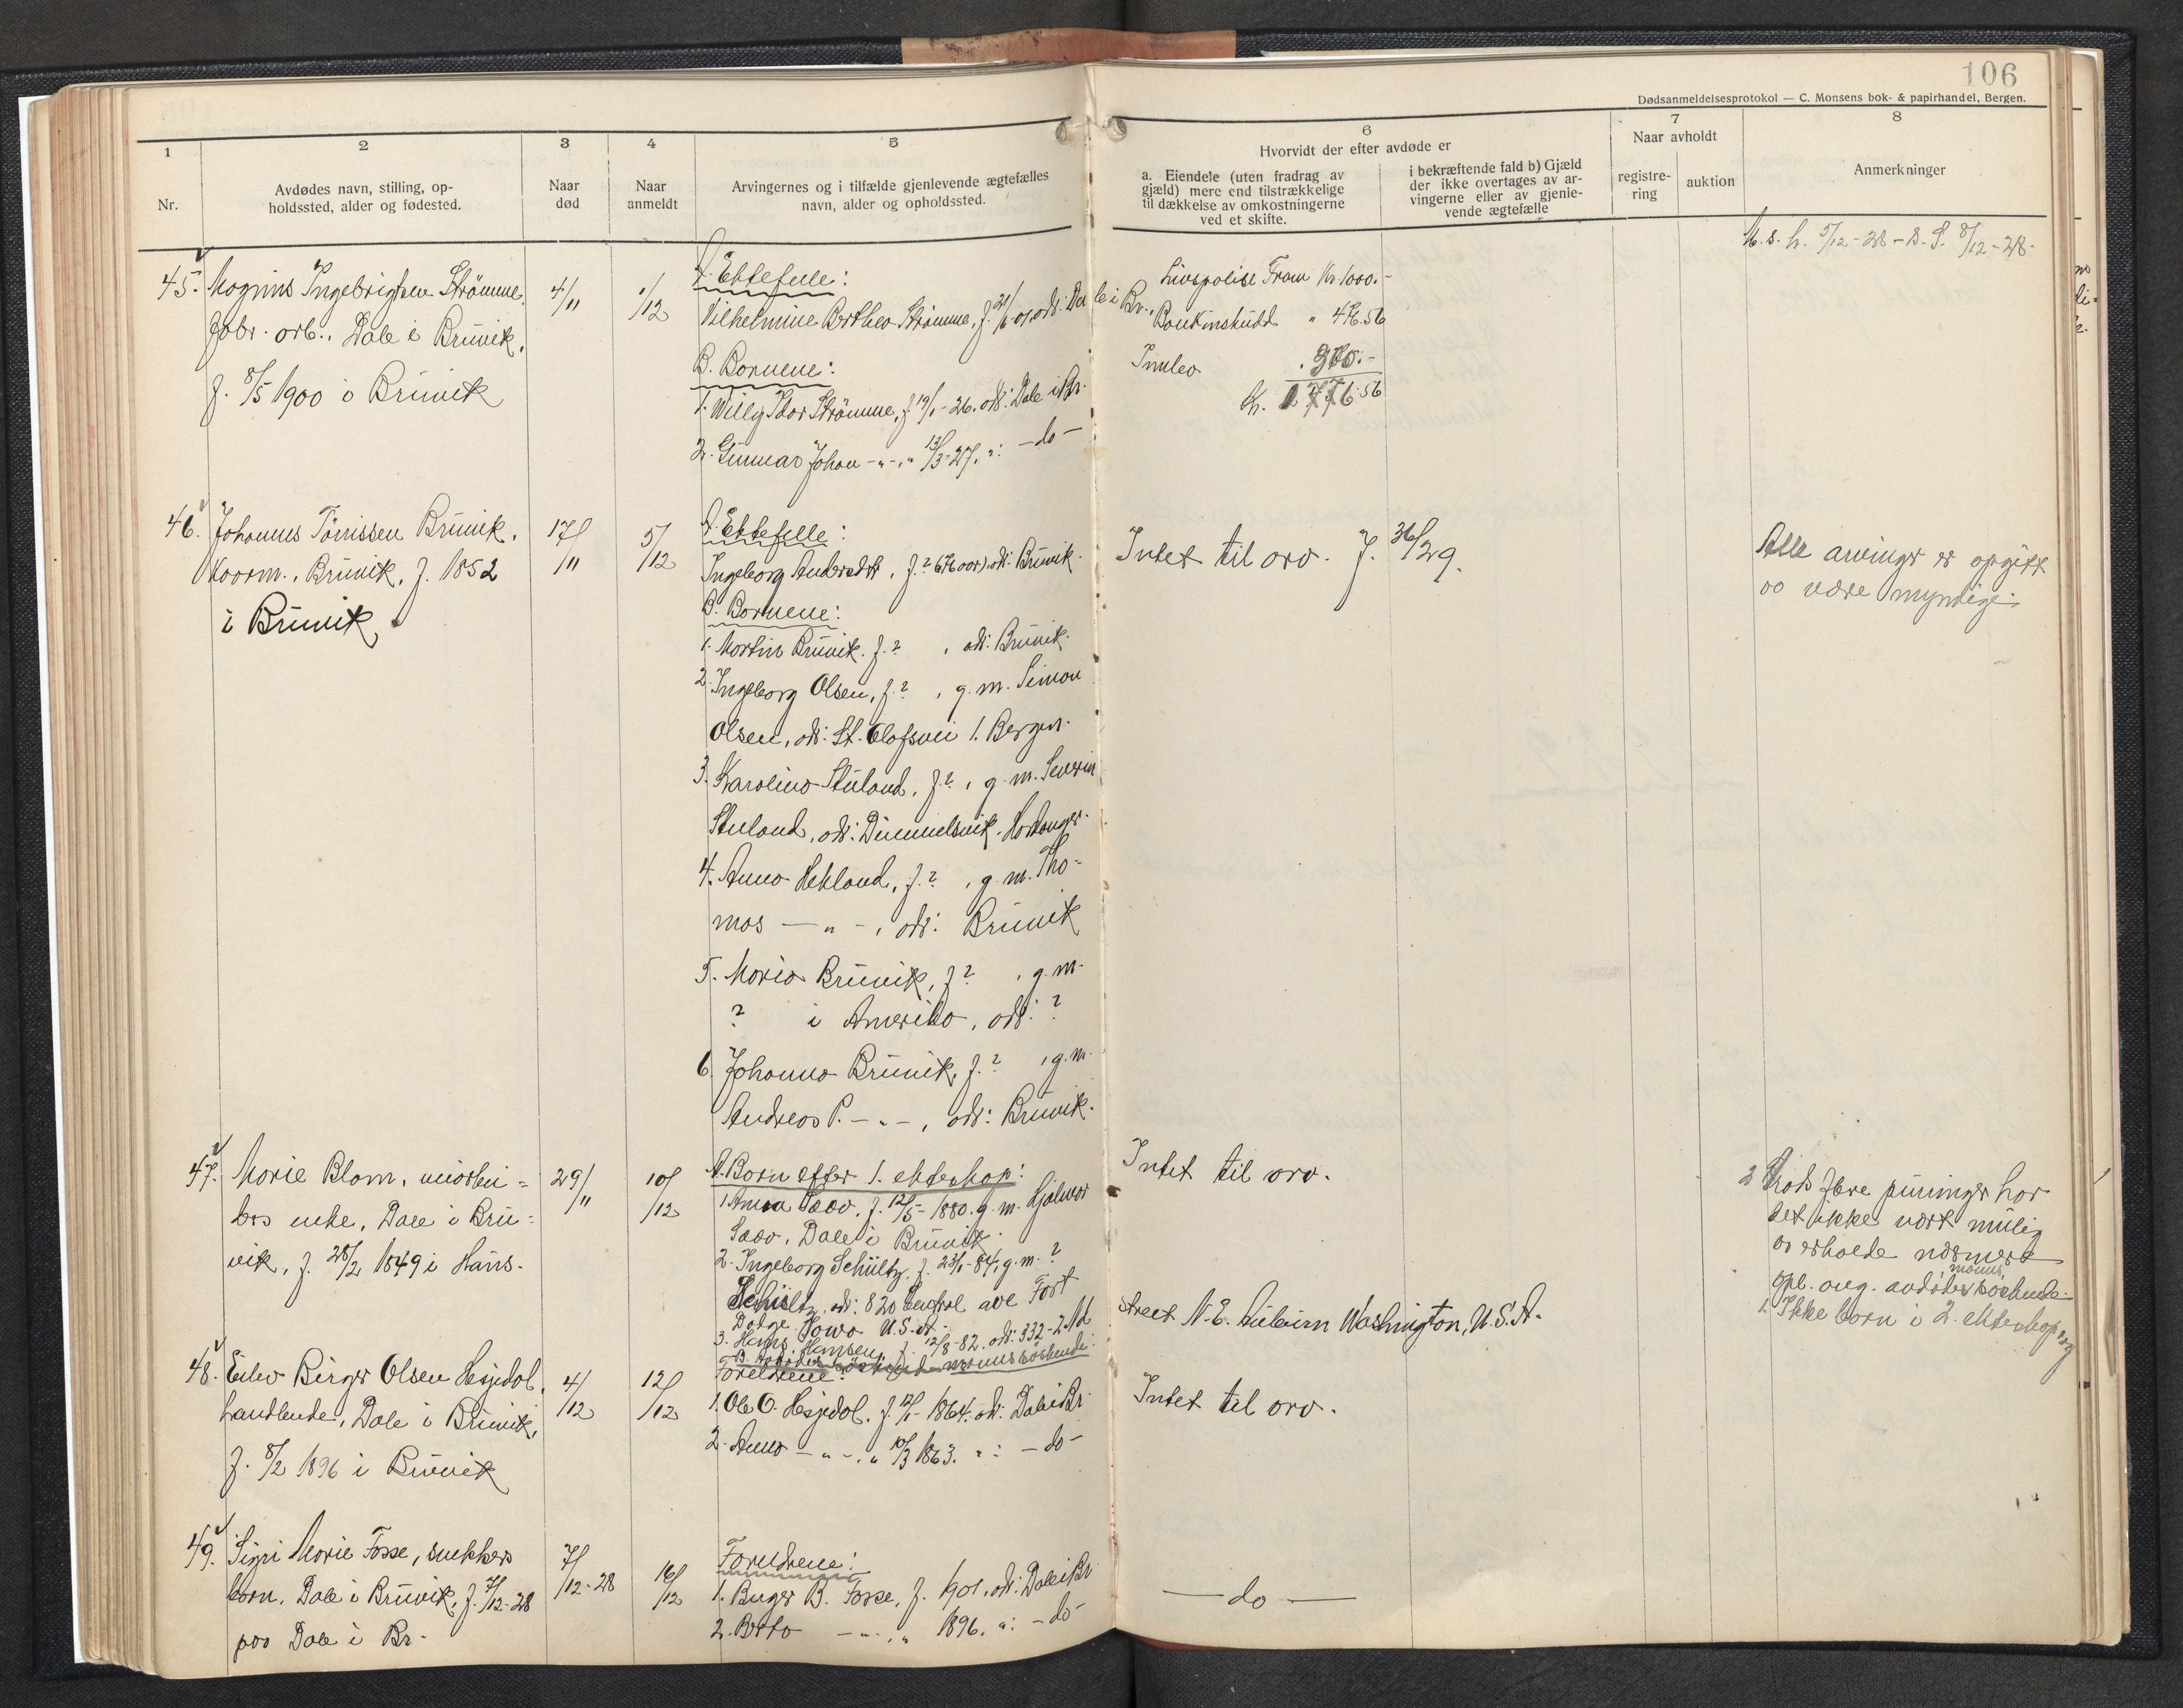 106
Dødsanmeldelsesprotokol — C. Monsens bok- & papirhandel, Bergen.
1
Nr.
2
Avdødes navn, stilling, op-
holdssted, alder og fødested.
3
Naar
død
4
Naar
anmeldt
5
Arvingernes og i tilfælde gjenlevende ægtefælles
navn, alder og opholdssted.
6
Hvorvidt der efter avdøde er
a. Eiendele (uten fradrag av
gjæld) mere end tilstrækkelige
til dækkelse av omkostningerne
ved et skifte.
i bekræftende fald b) Gjæld
der ikke overtages av ar-
vingerne eller av gjenle-
vende ægtefælle
7
Naar avholdt
registre-
ring
auktion
8
Anmerkninger
45. Magnus Ingebrigtsen Strømme,
fabr. arb., Dale i Bruvik,
f. 8/5 1900 i Bruvik
4/11
1/12
A. Ektefelle:
Vilhelmine Berthea Strømme, f. 21/6-01, adr: Dale i Br.,
B. Bornene:
1. Willy Thor Strømme, f. 19/1-26, adr: Dale i Br.
2. Gunnar Johan -"-, " 13/3-27, ": -do-
Livspolise Fram Kr 1000.-
Bankinskudd " 476.56
Innbo . 300.-
Kr. 1776.56
U. s. h. 5/12-28 - S. S. 8/12-28-
46. Johannes Tørrissen Bruvik,
kaarm., Bruvik, f. 1852
i Bruvik
17/11
5/12
A. Ektefelle:
Ingeborg Andersdtr, f. ? (76 aar), adr: Bruvik.
B. Bornene:
1. Martin Bruvik. f. ? , adr: Bruvik.
2. Ingeborg Olsen, f. ? , g. m. Simon
Olsen, adr: St. Olafsvei 1. Bergen.
3. Karolina Stuland, f. ? , g. m. Severin
Stuland, adr: Dimmelsvik, Hardanger.
4. Anna Hekland, f. ? , g. m. Tho-
mas — " - , adr: Bruvik
5. Maria Bruvik, f ? , g. m.
? i Amerika, adr: ?
6. Johanna Bruvik, f. ? , g. m.
Andreas P. - " - , adr: Bruvik.
Intet til arv. J. 36/29.
Alle arvinger er opgitt
aa være myndige.
47. Marie Blom,
enke, Dale i Bru-
vik, f. 28/2 1849 i Haus.
29/11
10/12
A. Born efter 1. ekteskap:
1. Anna Saav, f. 12/5-1880. g. m. Hjalmar
Saav, Dale i Bruvik.
2. Ingeborg Schültz, f. 23/1-84, g. m. ?
Schültz, adr: 820 Central ave Fort
Dodge Iowa U.S.A.
3. Hans Hansen, f. 12/8-82. adr: 332-2. Nd
street N. E. Auburn Washington, U.S.A.
Intet til arv.
2 Trods flere purringer har
det ikke vært mulig
aa erholde nærmere
opl. ang. avdødes manns søskende.
1. Ikke born i 2. ekteskap
48. Eilev Birger Olsen Hesjedal,
handlende, Dale i Bruvik,
f. 8/2 1896 i Bruvik
4/12
12/12
Foreldrene:
1. Ole O. Hesjedal, f. 12/1-1864. adr: Dale i Br.
2. Anna - " - , " 10/3 1863. ": - do -
Intet til arv.
49. Sigri Marie Fosse, snekkers
barn, Dale i Bruvik, f. 7/12-28
paa Dale i Br.
7/12-28
16/12
Foreldrene:
1. Birger B. Fosse, f. 1901, adr: Dale i Br.
2. Berta - " - , " 1896. ": - do -
— do —